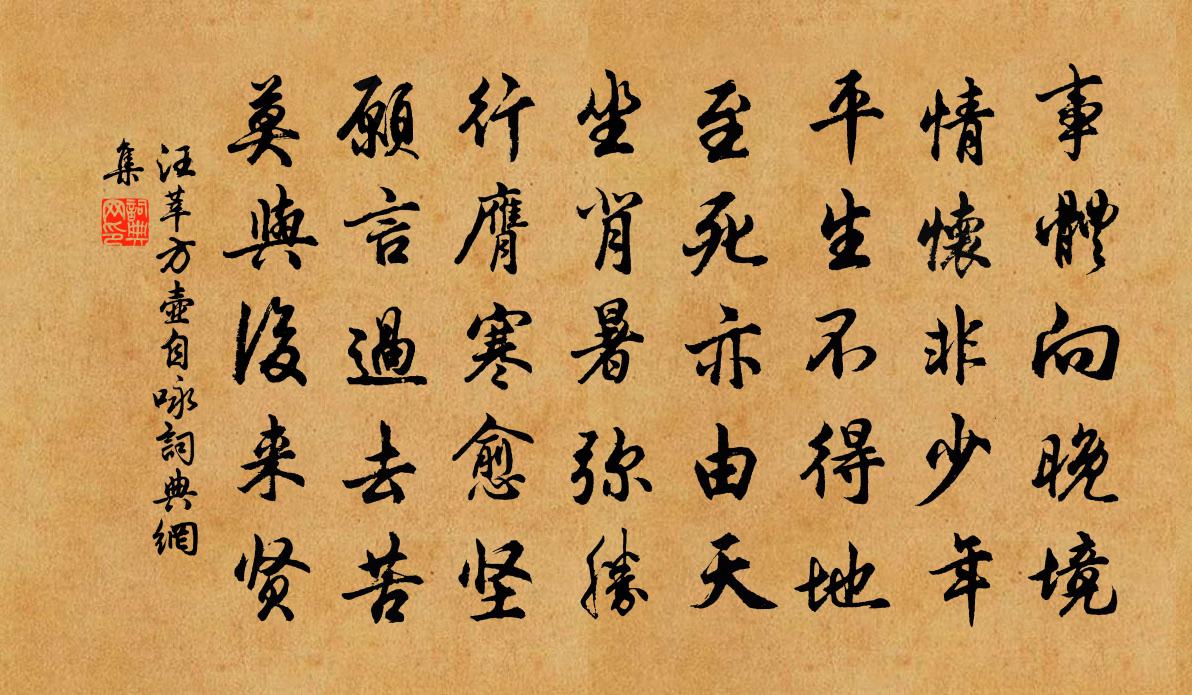 事體向晚境
情懷非少年
平生不得地
至死亦由天
坐肖暑弥勝
行膺寒愈坚
願言過去苦
莫與後来贤
汪莘方壺自咏詞典網
集
詞典網印